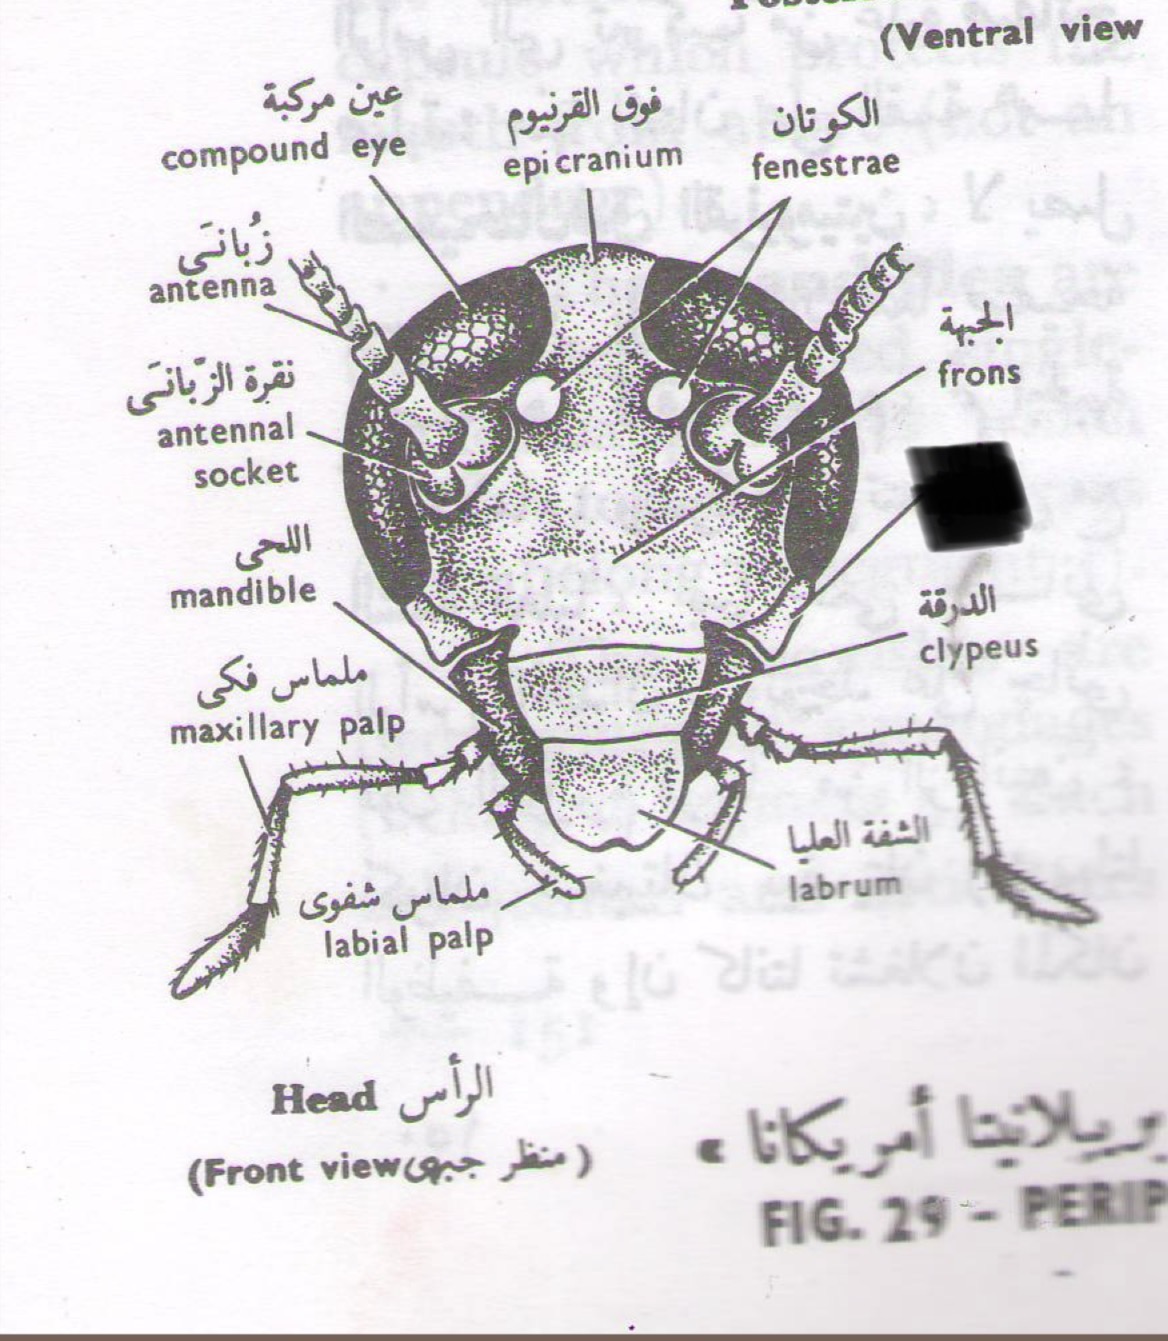 (Ventral view
عين مركبة
compound eye
فوق القرنيوم
epicranium
الكوتان
fenestrae
زُبانَى
antenna
الجبهة
frons
نقرة الزّبانَى
antennal
socket
اللحى
mandible
الدرقة
clypeus
ملماس فكى
maxillary palp
الشفة العليا
labrum
ملماس شفوى
labial palp
الرأس Head
(Front view منظر جبهى)
بيريبلانيتا أمريكانا »
FIG. 29 - PERIP